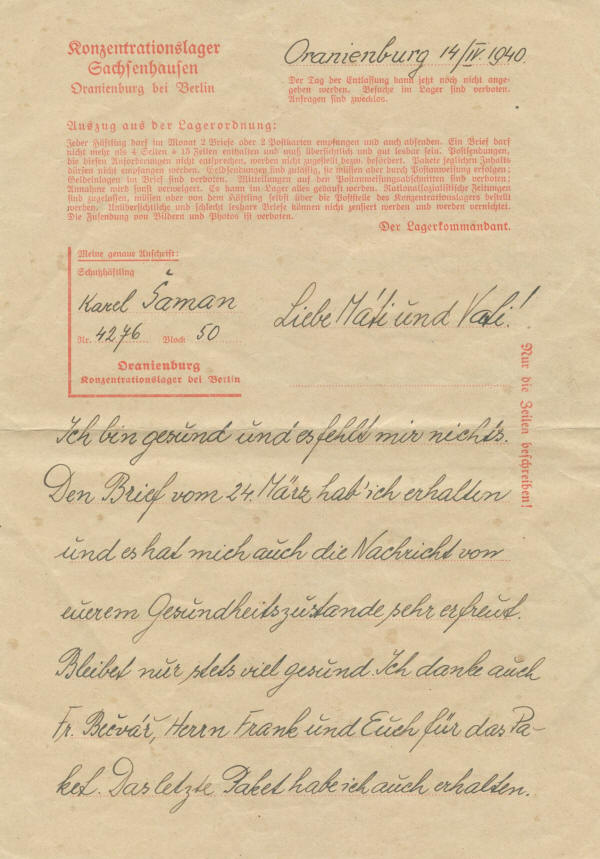 Konzentrationslager
Sachsenhausen
Oranienburg bei Berlin
Oranienburg 14/IV. 1940.
Der Tag der Entlassung kann jetzt noch nicht ange-
geben werden. Besuche im Lager sind verboten.
Anfragen sind zwecklos.
Auszug aus der Lagerordnung:
Jeder Häftling darf im Monat 2 Briefe oder 2 Postkarten empfangen und auch absenden. Ein Brief darf
nicht mehr als 4 Seiten à 15 Zeilen enthalten und muß übersichtlich und gut lesbar sein. Postsendungen,
die diesen Anforderungen nicht entsprechen, werden nicht zugestellt bezw. befördert. Pakete jeglichen Inhalts
dürfen nicht empfangen werden. Geldsendungen sind zulässig, sie müssen aber durch Postanweisung erfolgen;
Geldeinlagen im Brief sind verboten. Mitteilungen auf den Postanweisungsabschnitten sind verboten;
Annahme wird sonst verweigert. Es kann im Lager alles gekauft werden. Nationalsozialistische Zeitungen
sind zugelassen, müssen aber von dem Häftling selbst über die Poststelle des Konzentrationslagers bestellt
werden. Unübersichtliche und schlecht lesbare Briefe können nicht zensiert werden und werden vernichtet.
Die Zusendung von Bildern und Photos ist verboten.
Der Lagerkommandant.
Meine genaue Anschrift:
Schutzhäftling
Karel Šaman
Nr. 4276 Block 50
Oranienburg
Konzentrationslager bei Berlin
Liebe Máti und Vati!
Nur die Zeilen beschreiben!
Ich bin gesund und es fehlt mir nichts.
Den Brief vom 24. März hab' ich erhalten
und es hat mich auch die Nachricht von
euerem Gesundheitszustande sehr erfreut.
Bleibet nur stets viel gesund. Ich danke auch
Fr. Bečvář, Herrn Frank und Euch für das Pa-
ket. Das letzte Paket habe ich auch erhalten.